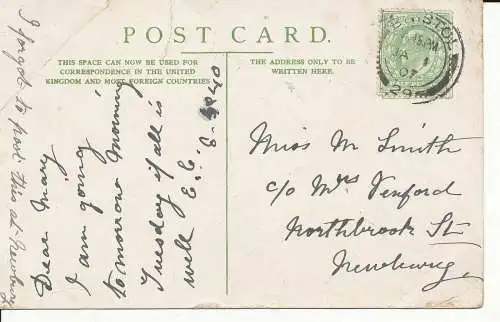 POST CARD.
THIS SPACE CAN NOW BE USED FOR
CORRESPONDENCE IN THE UNITED
KINGDOM AND MOST FOREIGN COUNTRIES
THE ADDRESS ONLY TO BE
WRITTEN HERE.
I forgot to post this at Newbury
Dear Mary
I am going
tomorrow morning
Tuesday if all is
well E. E.
Miss M Smith
c/o Mrs Venford
Northbrook St
Newbury
BRISTOL
JA 1
07